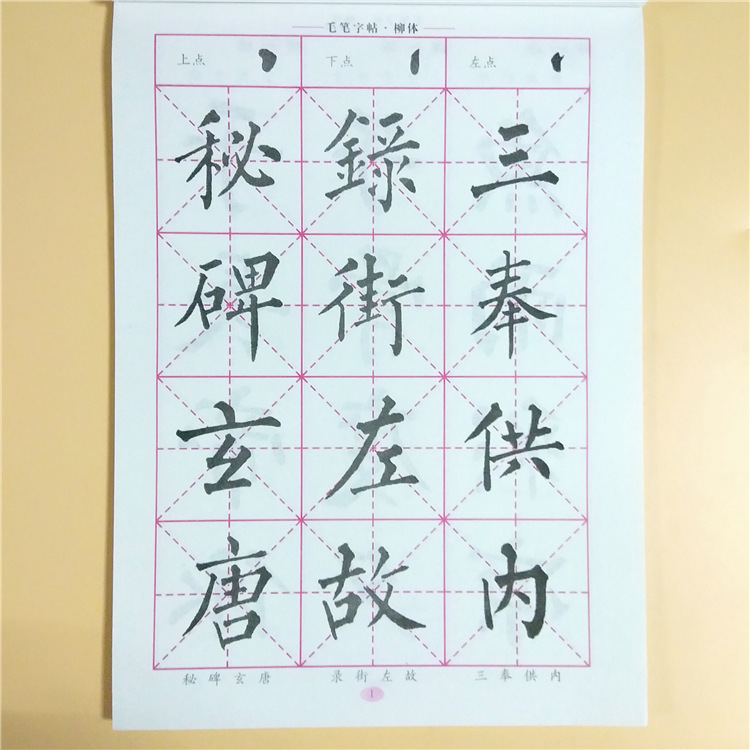 毛笔字帖·柳体
上点 下点 左点
秘 錄 三
碑 街 奉
玄 左 供
唐 故 内
秘碑玄唐 录街左故 三奉供内
1